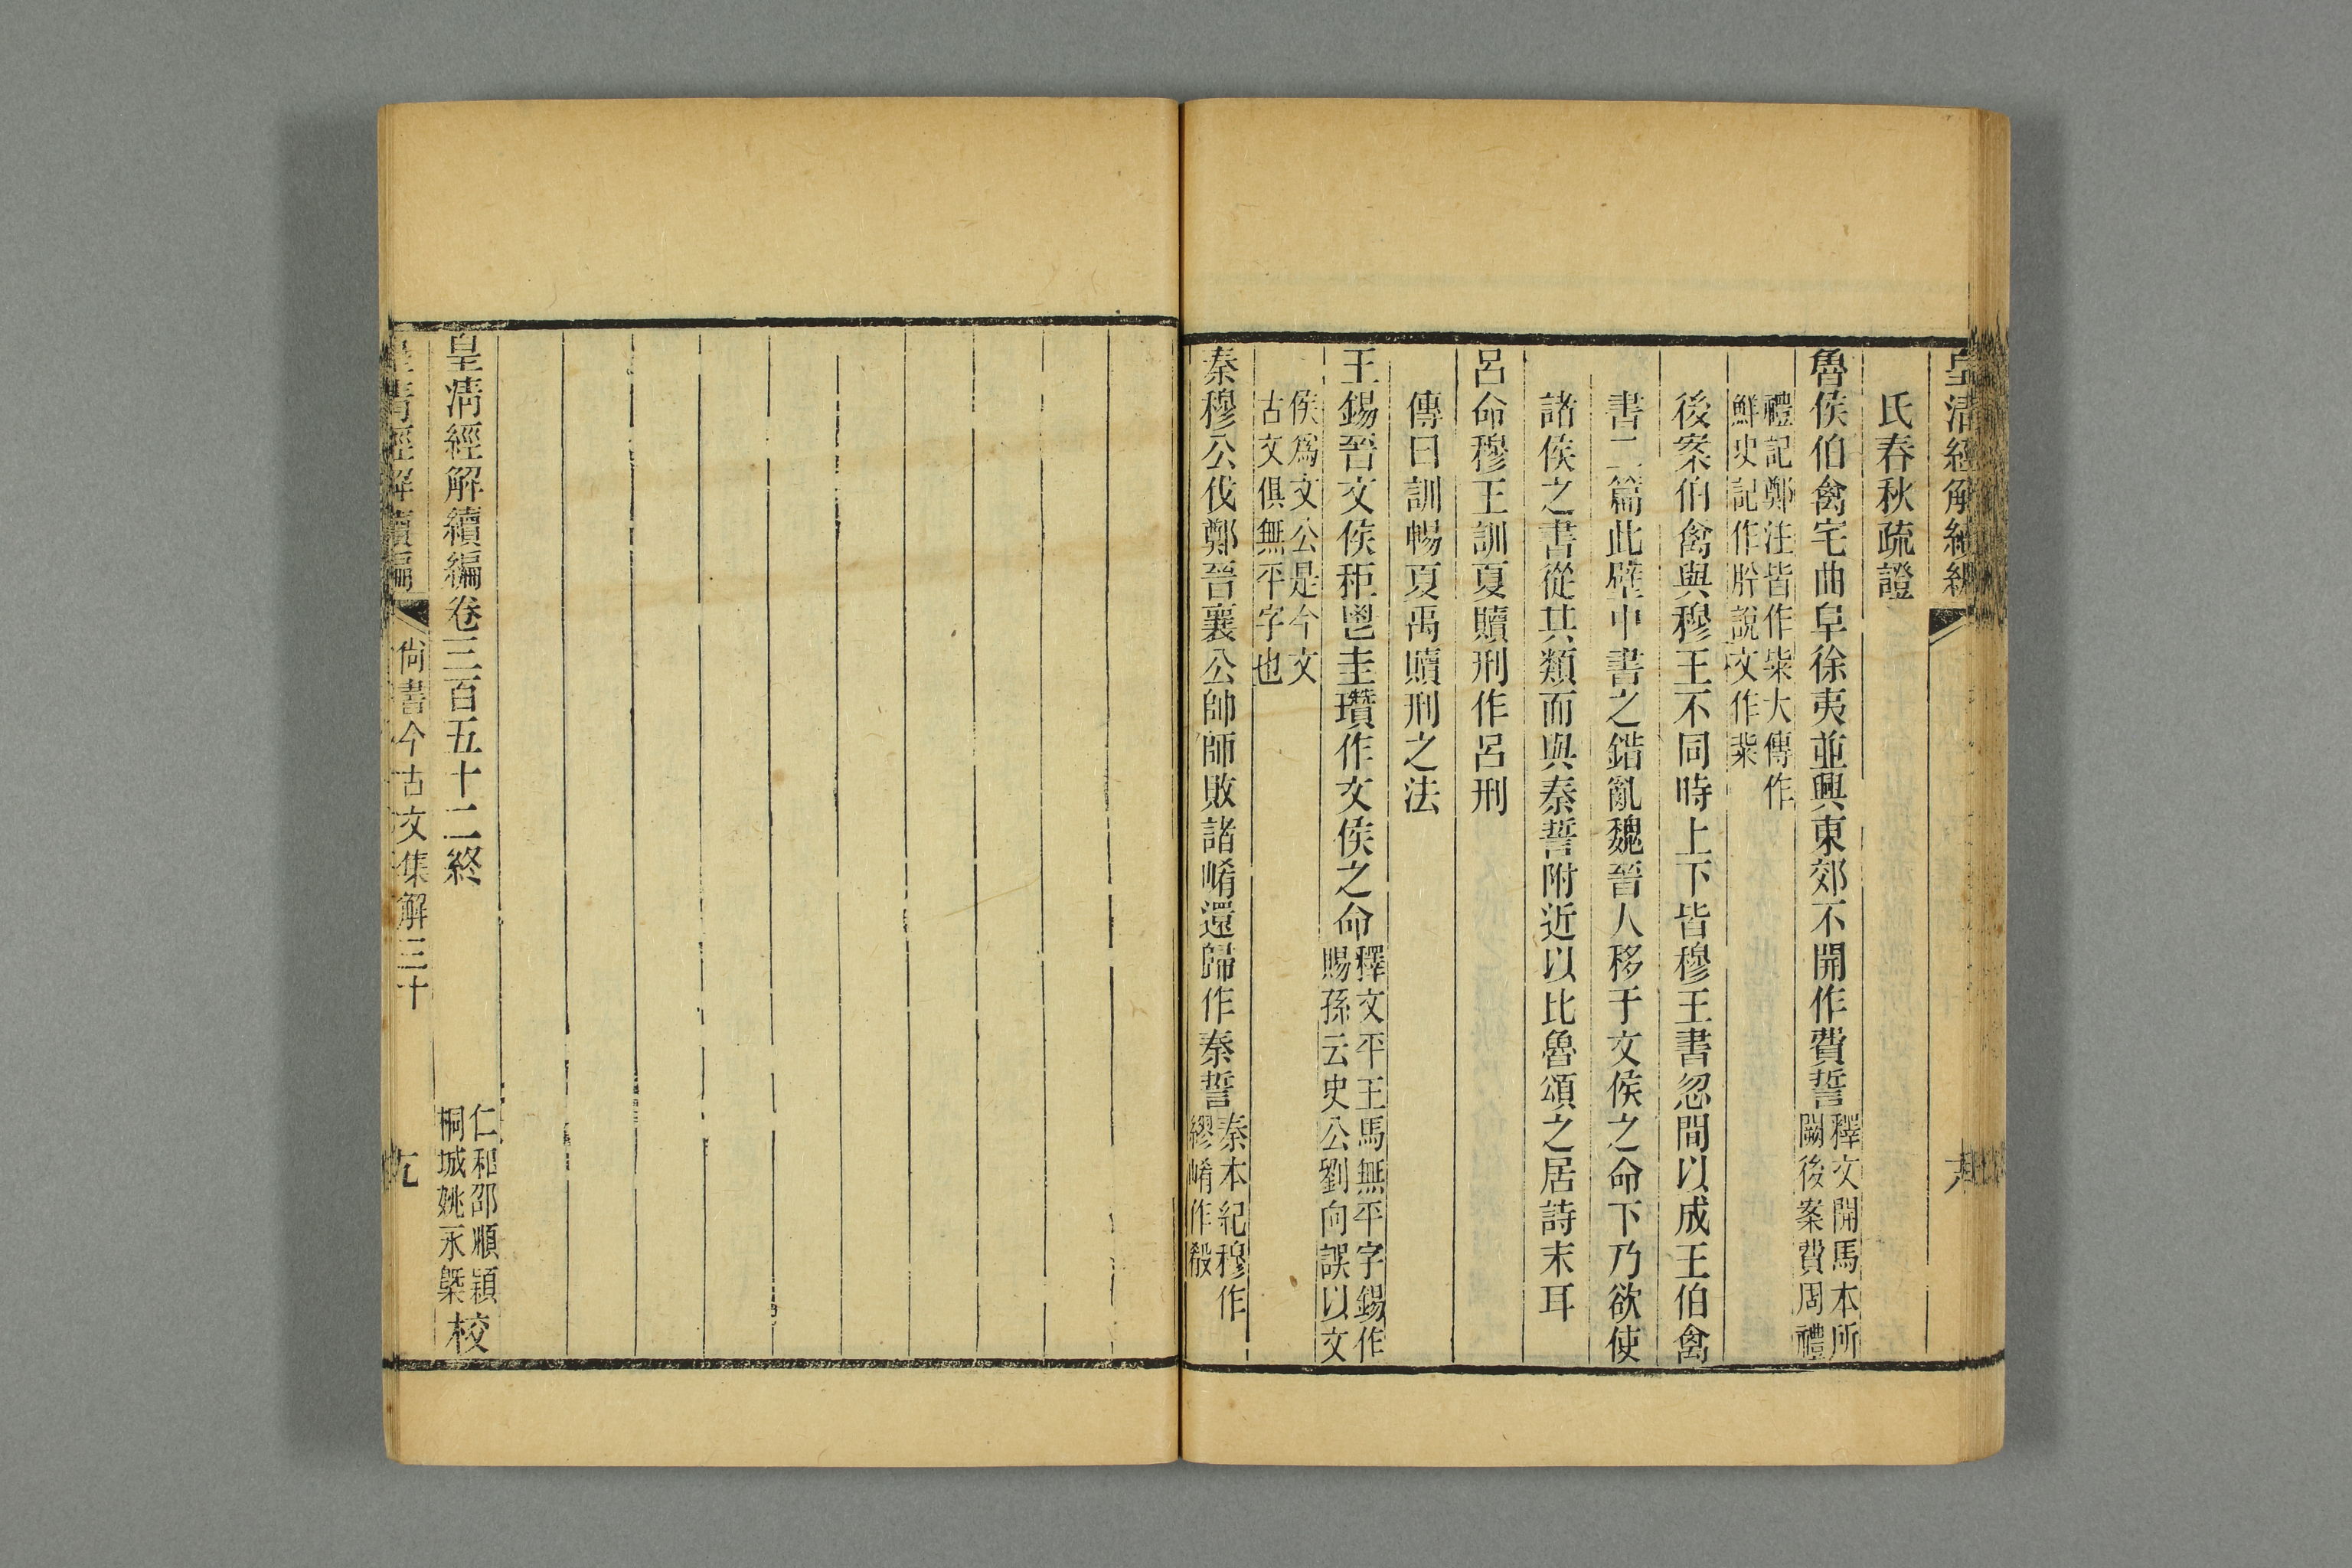 皇清經解續編
氏春秋疏證
魯侯伯禽宅曲阜徐夷並興東郊不開作費誓釋文開馬本所
闢後案費周禮
禮記鄭注皆作柴大傳作
鮮史記作肸說文作粊
後案伯禽與穆王不同時上下皆穆王書忽間以成王伯禽
書二篇此壁中書之錯亂魏晉人移于文侯之命下乃欲使
諸侯之書從其類而與秦誓附近以比魯頌之居詩末耳
呂命穆王訓夏贖刑作呂刑
傳曰訓暢夏禹贖刑之法
王錫晉文侯秬鬯圭瓚作文侯之命釋文平王馬無平字錫作
賜孫云史公劉向誤以文
侯爲文公是今文
古文俱無平字也
秦穆公伐鄭晉襄公帥師敗諸崤還歸作秦誓秦本紀穆作
繆崤作殽
皇清經解續編卷三百五十二終
仁和邵順穎
桐城姚永㮣
校
皇清經解續編
尙書今古文集解三十
九